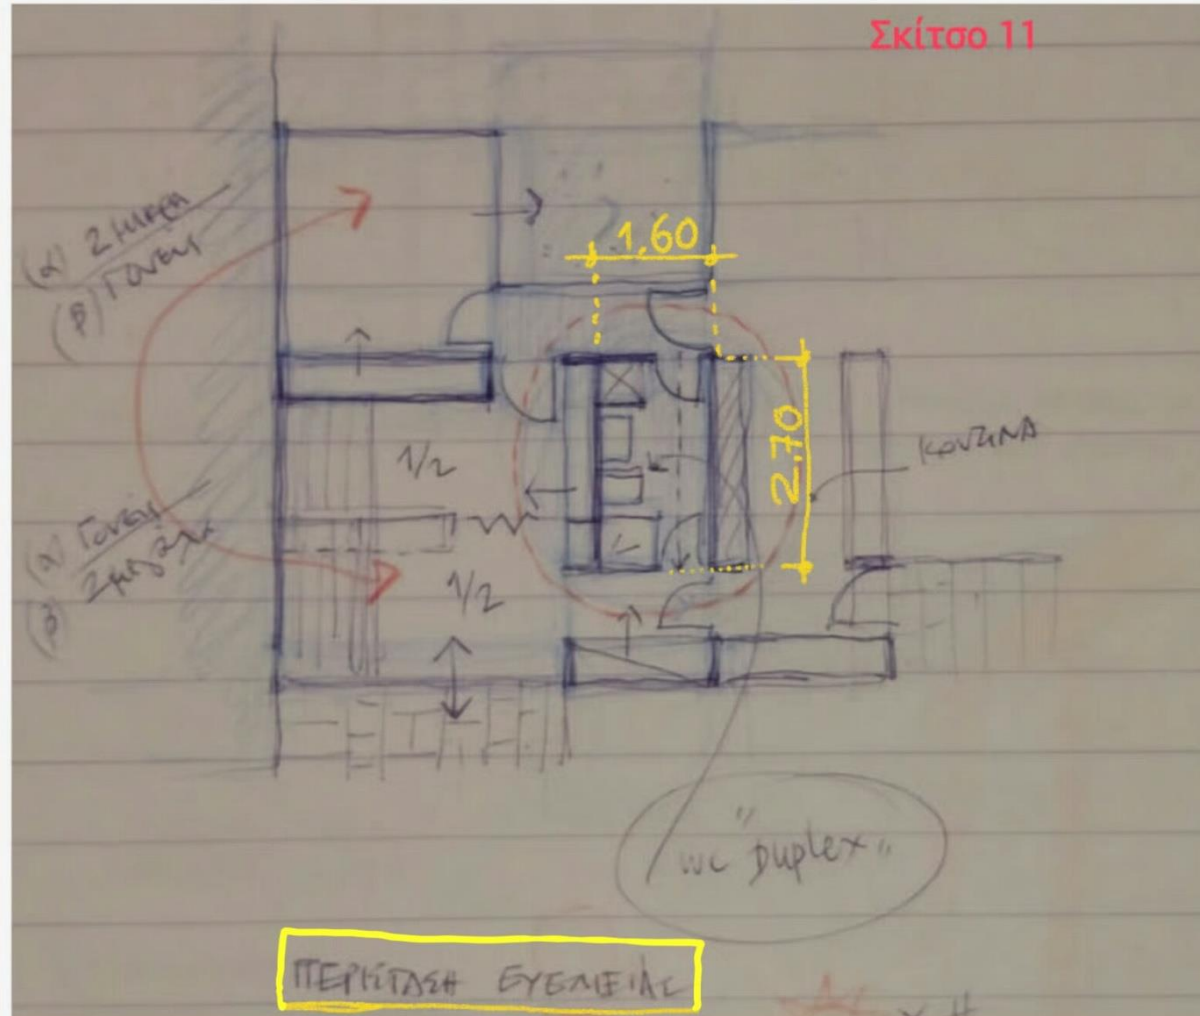 Σκίτσο 11
(α) 2 μικρα
(β) Γονεις
1.60
2.70
ΚΟΥΖΙΝΑ
1/2
(α) Γονεις
(β) 2 μεγάλα
1/2
wc "Duplex"
ΠΕΡΙΣΤΑΣΗ ΕΥΕΛΙΞΙΑΣ